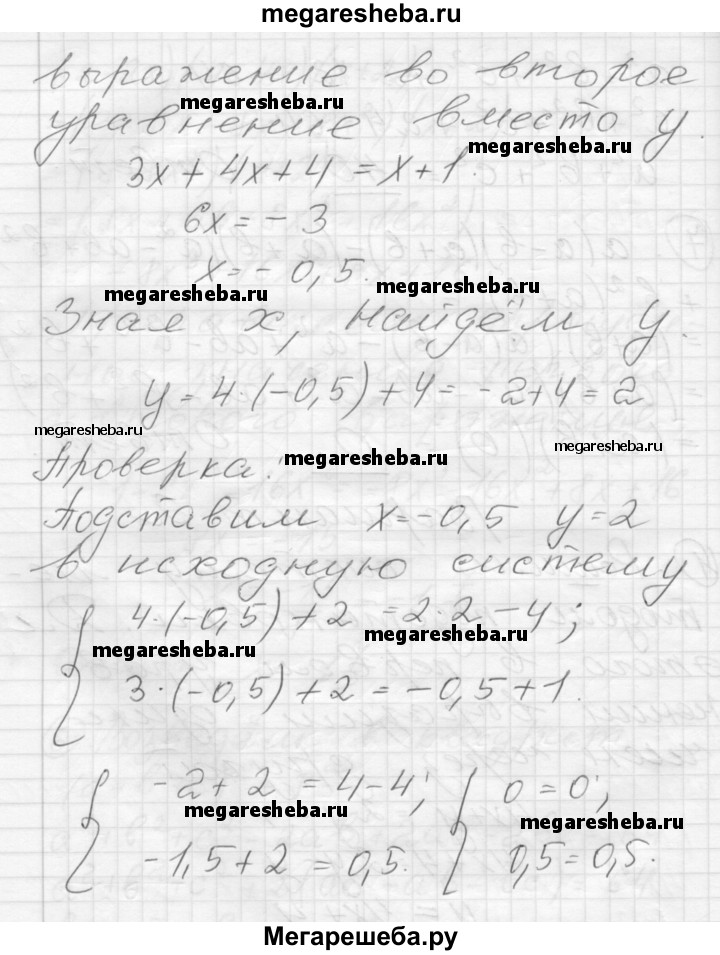 megaresheba.ru
выражение во второе
megaresheba.ru
уравнение вместо y.
megaresheba.ru
3x + 4x + 4 = x + 1.
6x = - 3
x = - 0,5.
megaresheba.ru megaresheba.ru
Зная x, найдём y.
y = 4·(-0,5) + 4 = -2 + 4 = 2
megaresheba.ru megaresheba.ru megaresheba.ru
Проверка.
Подставим x = -0,5 y = 2
в исходную систему
{ 4·(-0,5) + 2 = 2·2 - 4;
megaresheba.ru megaresheba.ru
3·(-0,5) + 2 = -0,5 + 1.
{ -2 + 2 = 4 - 4; { 0 = 0;
megaresheba.ru megaresheba.ru
-1,5 + 2 = 0,5. 0,5 = 0,5.
Мегарешеба.ру